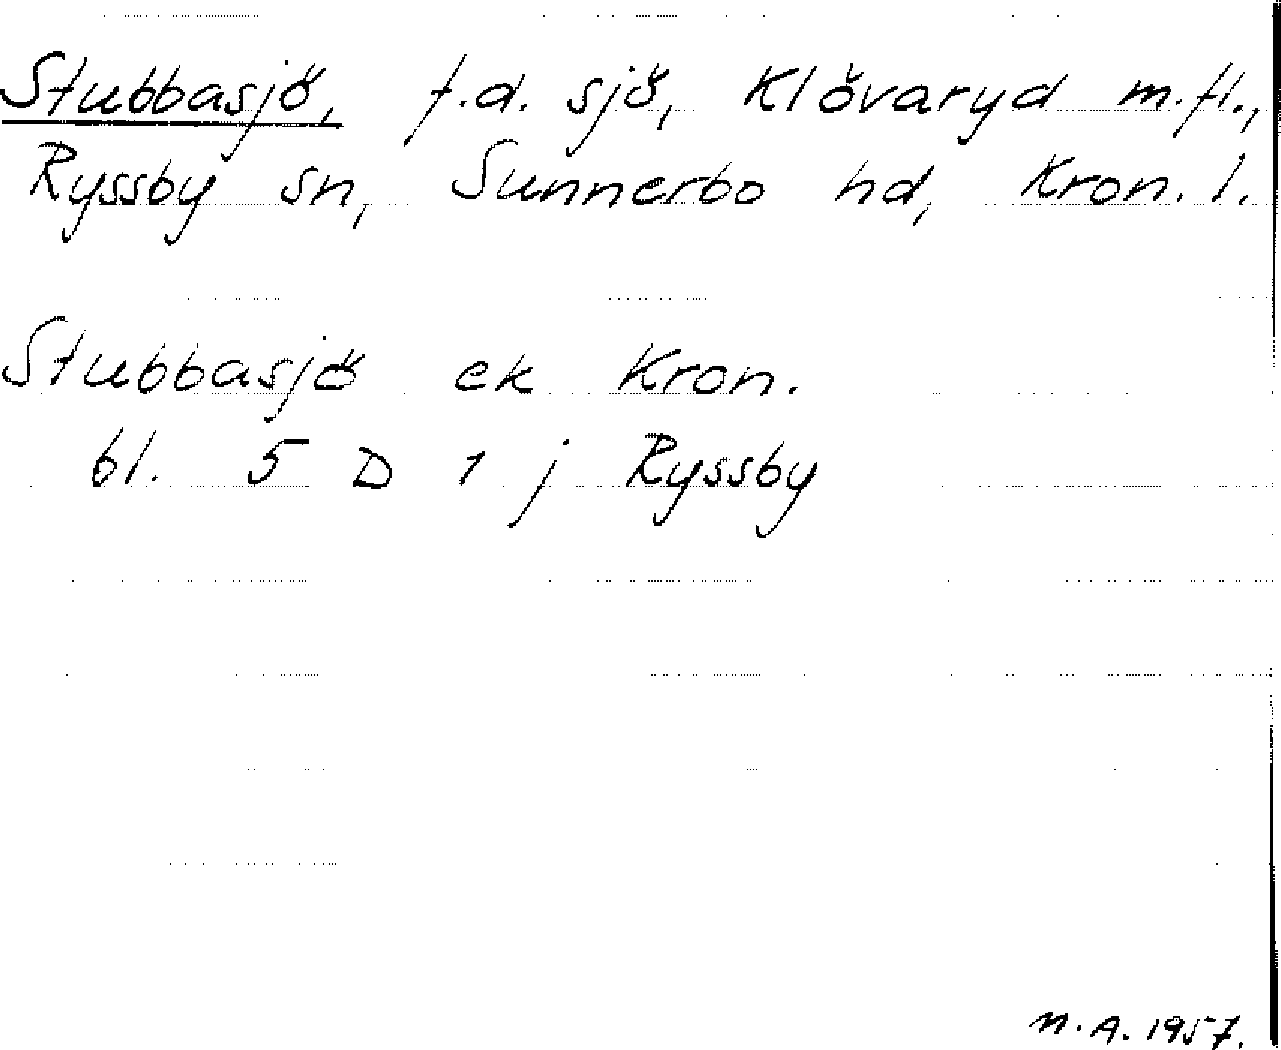 Stubbasjö, f.d. sjö, Klövaryd m.fl.,
Ryssby sn, Sunnerbo hd, Kron. l.
Stubbasjö ek Kron.
bl. 5 D 1 j Ryssby
N.A. 1957.